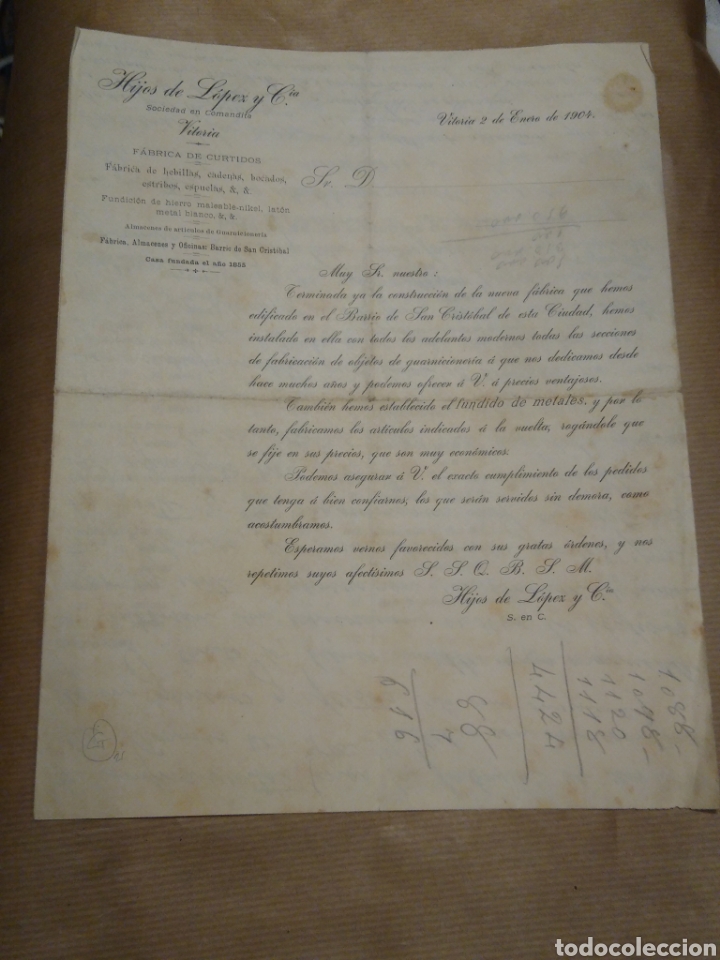 Hijos de López y C.ía
Sociedad en Comandita
Vitoria
FÁBRICA DE CURTIDOS
Fábrica de hebillas, cadenas, bocados,
estribos, espuelas, &, &.
Fundición de hierro maleable-nikel, latón
metal blanco, &, &.
Almacenes de artículos de Guarnicionería
Fábrica, Almacenes y Oficinas: Barrio de San Cristóbal
Casa fundada el año 1855
Vitoria 2 de Enero de 1904.
Sr. D.
Muy Sr. nuestro:
Terminada ya la construcción de la nueva fábrica que hemos
edificado en el Barrio de San Cristóbal de esta Ciudad, hemos
instalado en ella con todos los adelantos modernos todas las secciones
de fabricación de objetos de guarnicionería á que nos dedicamos desde
hace muchos años y podemos ofrecer á V. á precios ventajosos.
También hemos establecido el fundido de metales, y por lo
tanto, fabricamos los artículos indicados á la vuelta, rogándole que
se fije en sus precios, que son muy económicos.
Podemos asegurar á V. el exacto cumplimiento de los pedidos
que tenga á bien confiarnos, los que serán servidos sin demora, como
acostumbramos.
Esperamos vernos favorecidos con sus gratas órdenes, y nos
repetimos suyos afectísimos S. S. Q. B. S. M.
Hijos de López y C.ía
S. en C.
1088-
1098-
1120
1118
4424
88
7
616
todocoleccion